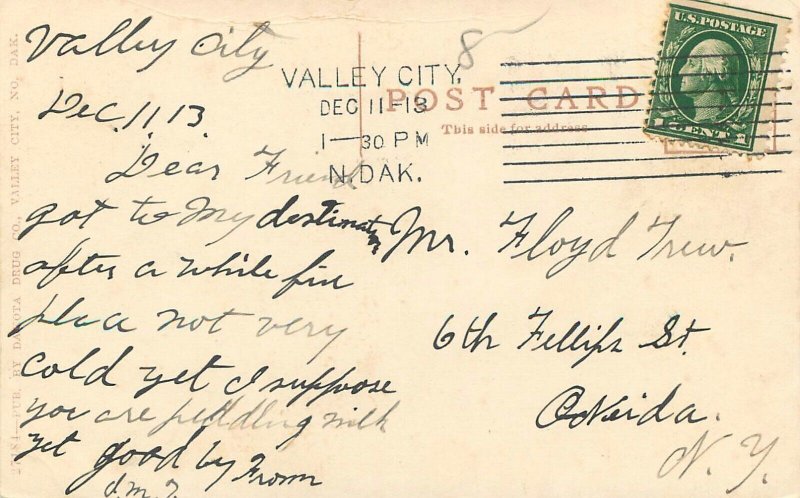 Valley City
Dec. 11. 13.
Dear Friend
got to My destination
after a while fine
place not very
cold yet I suppose
you are peddling milk
yet good by From
J.M.T.
8
VALLEY CITY,
DEC 11-13
1-30 PM
N.DAK.
POST CARD
This side for address
U.S.POSTAGE
1 CENT 1
Mr. Floyd Trew.
6th Fellips St.
ONeida.
N.Y.
PUB. BY DAKOTA DRUG CO., VALLEY CITY, NO. DAK.